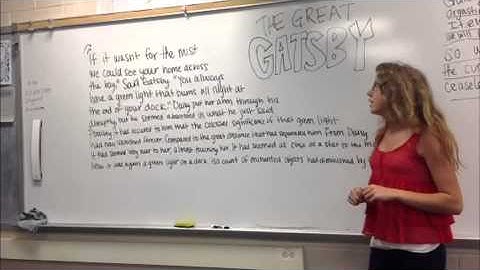 THE GREAT
GATSBY
"If it wasn't for the mist
we could see your home across
the bay" Said Gatsby. "You always
have a green light that burns all night at
the end of your dock." Daisy put her arm through his
abruptly but he seemed absorbed in what he just said
Possibly it had occured to him that the colossal significance of that green light
had now vanished forever. Compared to the great distance that had separated him from Daisy
it had seemed very near to her, almost touching her. It had seemed as close as a star to the
Now it was again a green light on a dock. His count of enchanted objects had diminished by
orgastic
it el
will
so w
the cur
ceasele